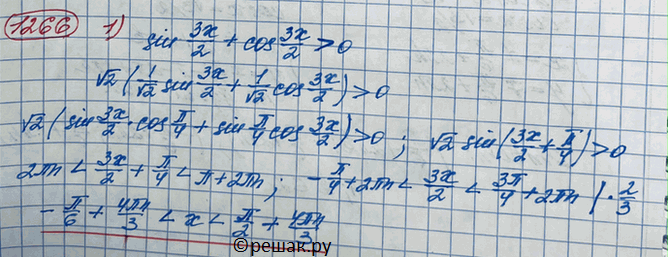 1266 1) sin 3x/2 + cos 3x/2 > 0
√2 (1/√2 sin 3x/2 + 1/√2 cos 3x/2) > 0
√2 (sin 3x/2 · cos π/4 + sin π/4 cos 3x/2) > 0 ; √2 sin (3x/2 + π/4) > 0
2πn < 3x/2 + π/4 < π + 2πn ; - π/4 + 2πn < 3x/2 < 3π/4 + 2πn | · 2/3
- π/6 + 4πn/3 < x < π/2 + 4πn/3
©решак.ру